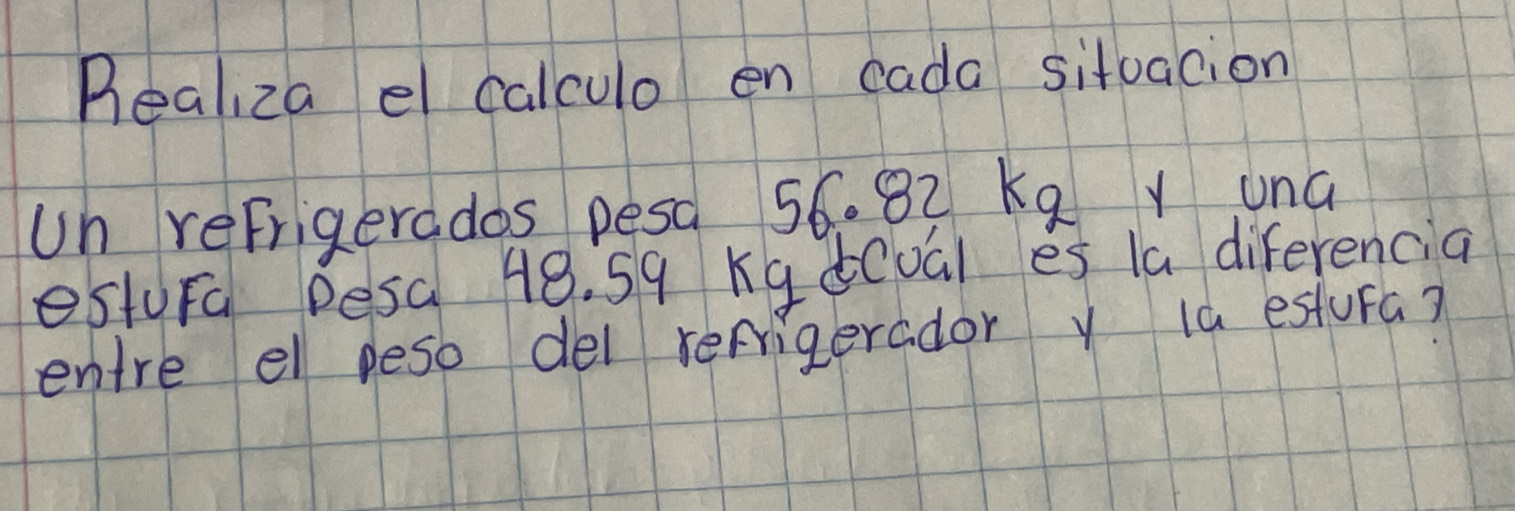 Realiza el calculo en cada situacion
Un refrigerados pesa 56.82 kg y una
estufa pesa 48.59 kg ¿Cuál es la diferencia
entre el peso del refrigerador y la estufa?